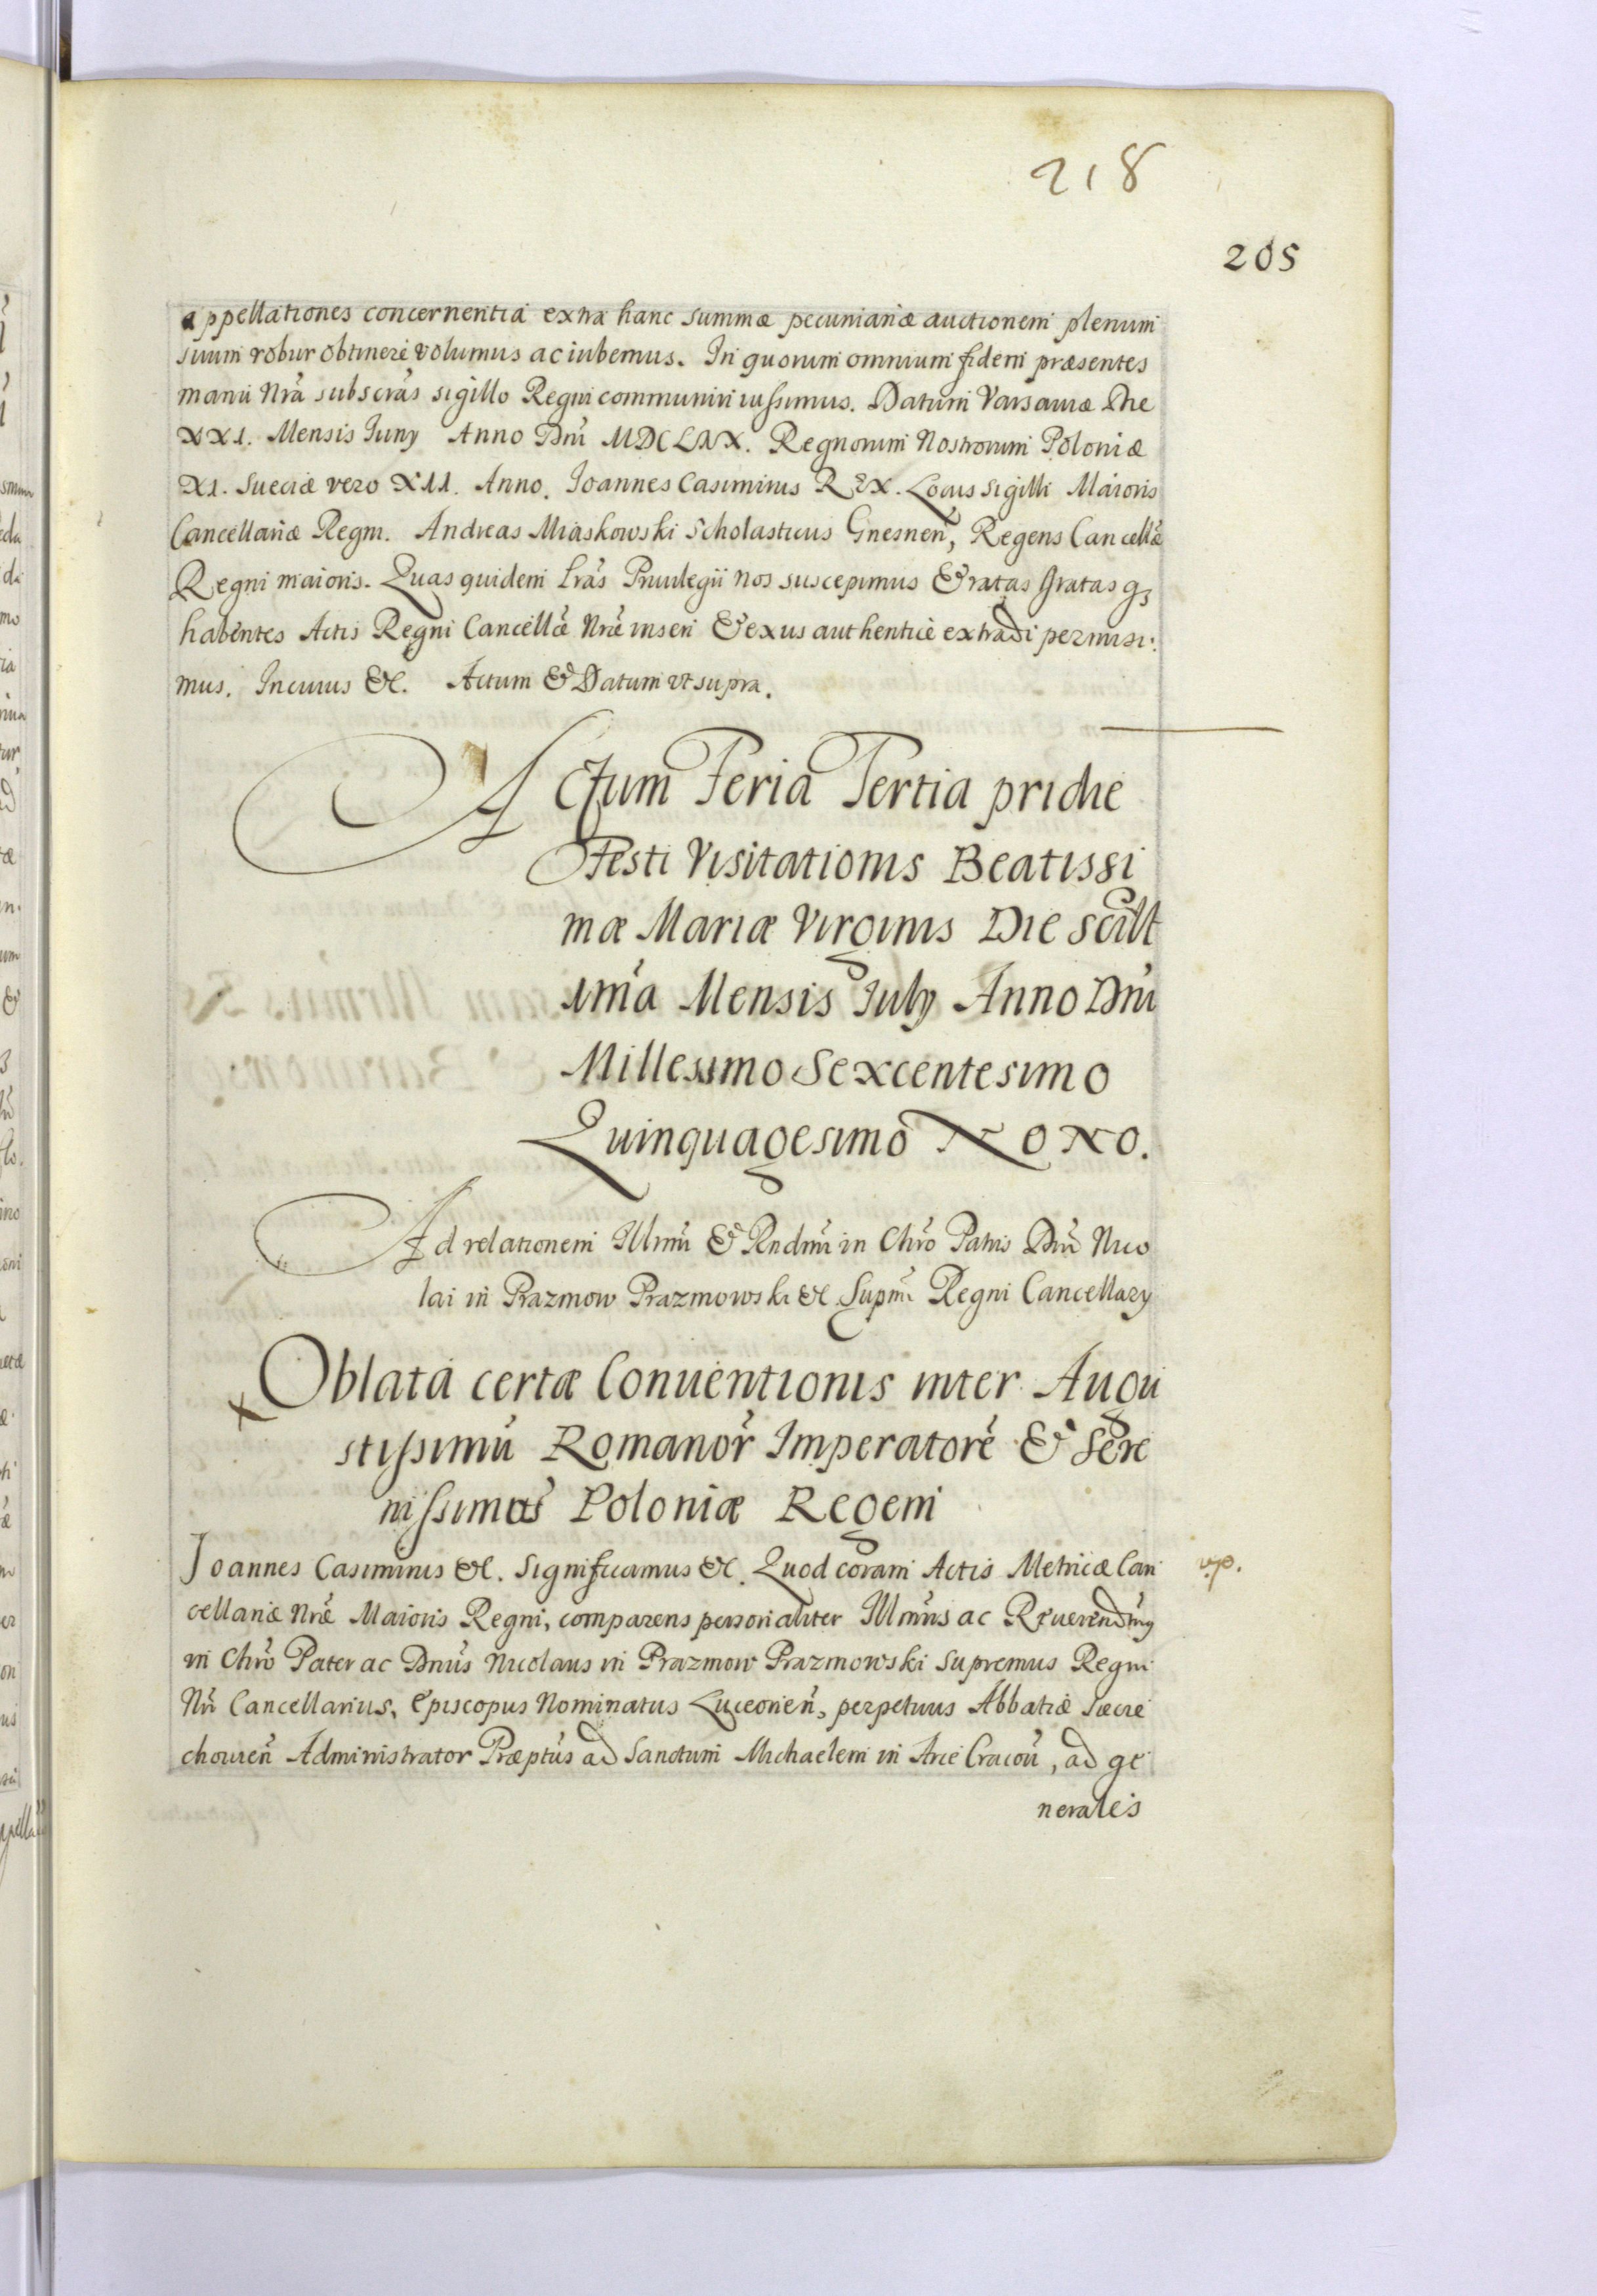 218
205
appellationes concernentia extra hanc summæ pecuniariæ auctionem plenum
suum robur obtinere volumus ac iubemus. In quorum omnium fidem præsentes
manu Nrã subscrãs sigillo Regni communiri iussimus. Datum Varsaviæ Die
XXI. Mensis Iuny Anno Dnĩ MDCLIX. Regnorum Nostrorum Poloniæ
XI. Sueciæ vero XII. Anno. Ioannes Casimirus REX. Locus Sigilli Maioris
Cancellariæ Regni. Andreas Miaskowski Scholasticus Gnesneñ, Regens Cancellæ
Regni maioris. Quas quidem Lrãs Privilegii nos suscepimus & ratas gratas q3
habentes Actis Regni Cancellæ Nræ inseri & exus authentice extradi permisi:
mus. In cuius &c. Actum & Datum ut supra.
Actum Feria Tertia pridie
Festi Visitationis Beatissi
mæ Mariæ Virginis Die scilt
1mã Mensis July Anno Dnĩ
Millesimo Sexcentesimo
Quinquagesimo NONO.
Ad relationem Illmĩ & Rndmĩ in Chrõ Patris Dnĩ Nico
lai in Prazmow Prazmowski &c Supmĩ Regni Cancellary
Oblata certæ Conventionis inter Augu
stissimũ Romanor̃ Imperatorẽ & Sere
nissimũ Poloniæ Regem
Joannes Casimirus &c. Significamus &c. Quod coram Actis Metricæ Can
cellariæ Nræ Maioris Regni, comparens personaliter Illmũs ac Reverendm̃us
in Chrõ Pater ac Dnũs Nicolaus in Prazmow Prazmowski Supremus Regni
Nrĩ Cancellarius, Episcopus Nominatus Luceorieñ, perpetuus Abbatiæ Sæcie
chovieñ Administrator Præptũs ad Sanctum Michaelem in Arce Cracoũ, ad ge
nerales